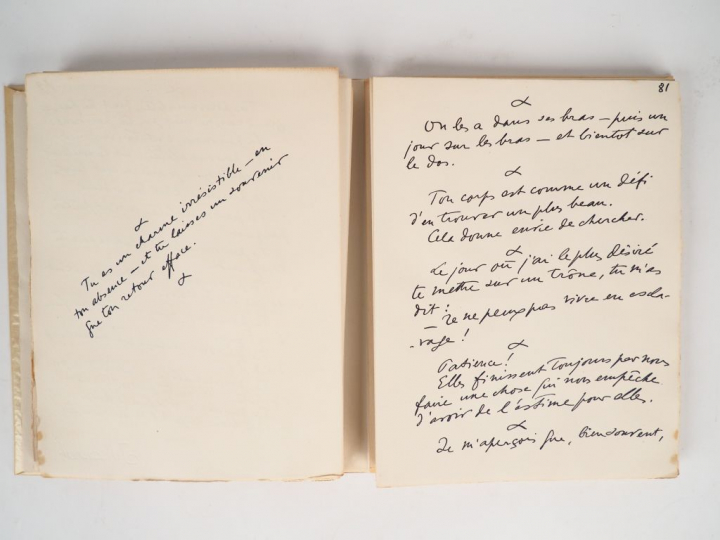 ∝
Tu es un charme irrésistible – en
ton absence – et tu laisses un souvenir
que ton retour efface.
∝
81
∝
On les a dans ses bras – puis un
jour sur les bras – et bientôt sur
le dos.
∝
Ton corps est comme un défi
d'en trouver un plus beau.
Cela donne envie de chercher.
∝
Le jour où j'ai le plus désiré
te mettre sur un trône, tu m'as
dit :
– Je ne peux pas vivre en escla-
-vage !
∝
Patience !
Elles finissent toujours par nous
faire une chose qui nous empêche
d'avoir de l'estime pour elles.
∝
Je m'aperçois que, bien souvent,